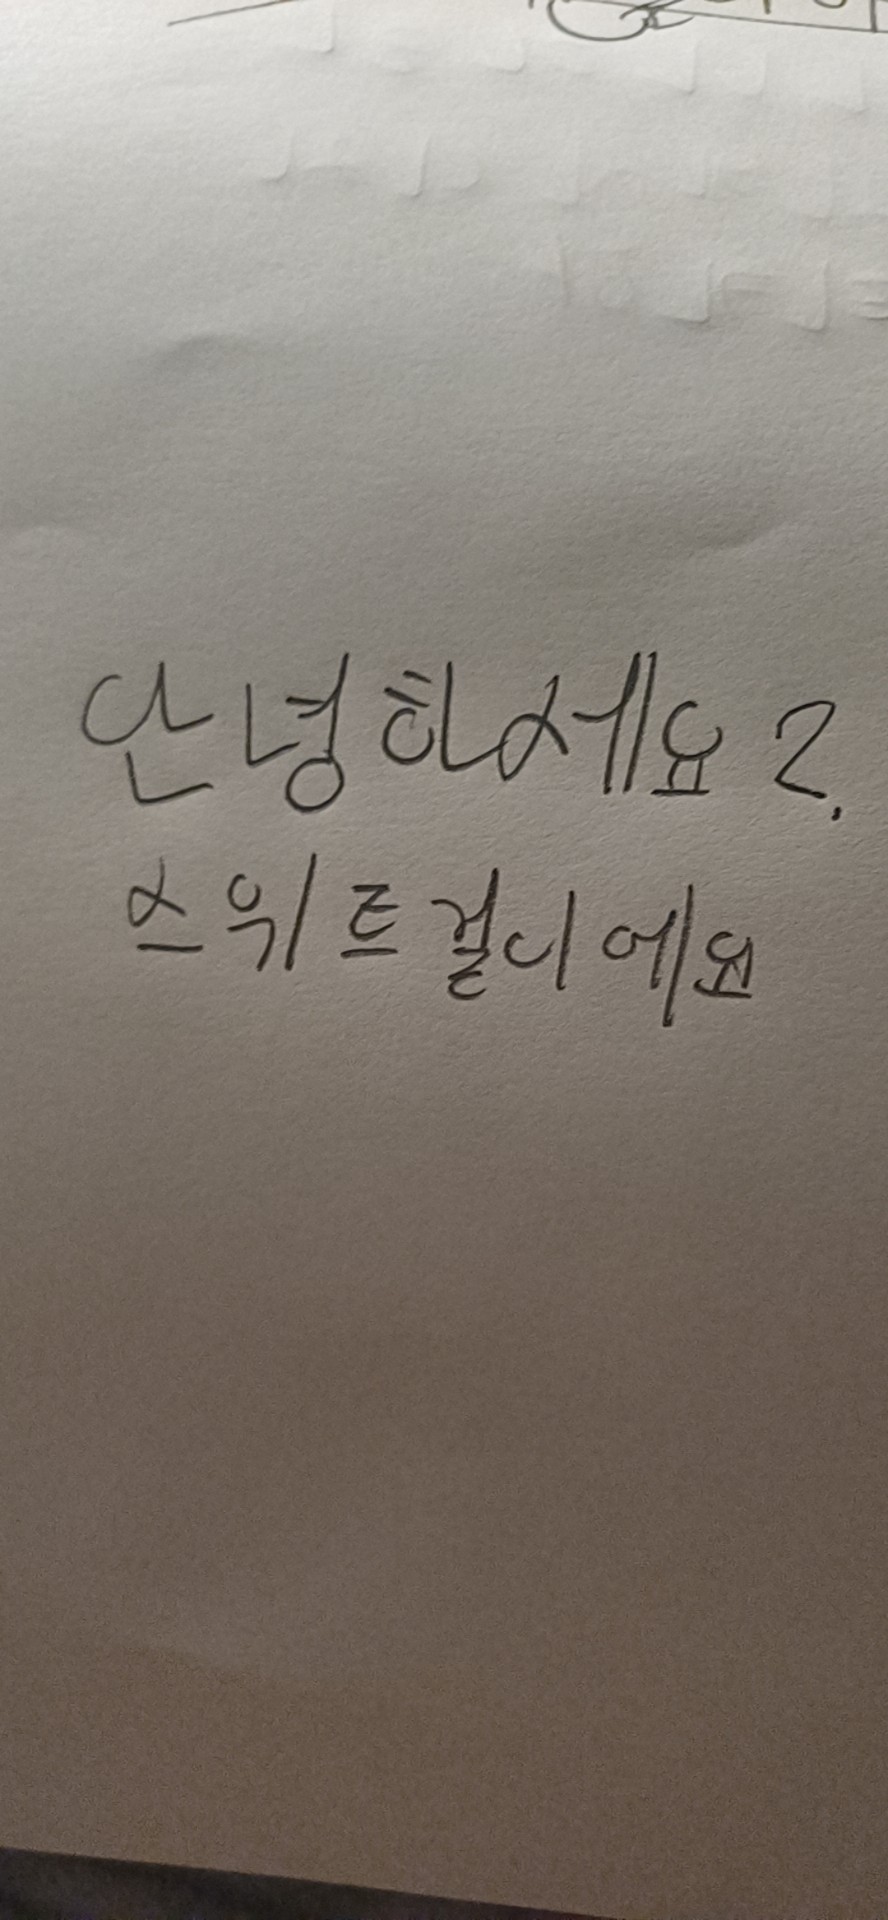 안녕하세요?
스위트걸이에요